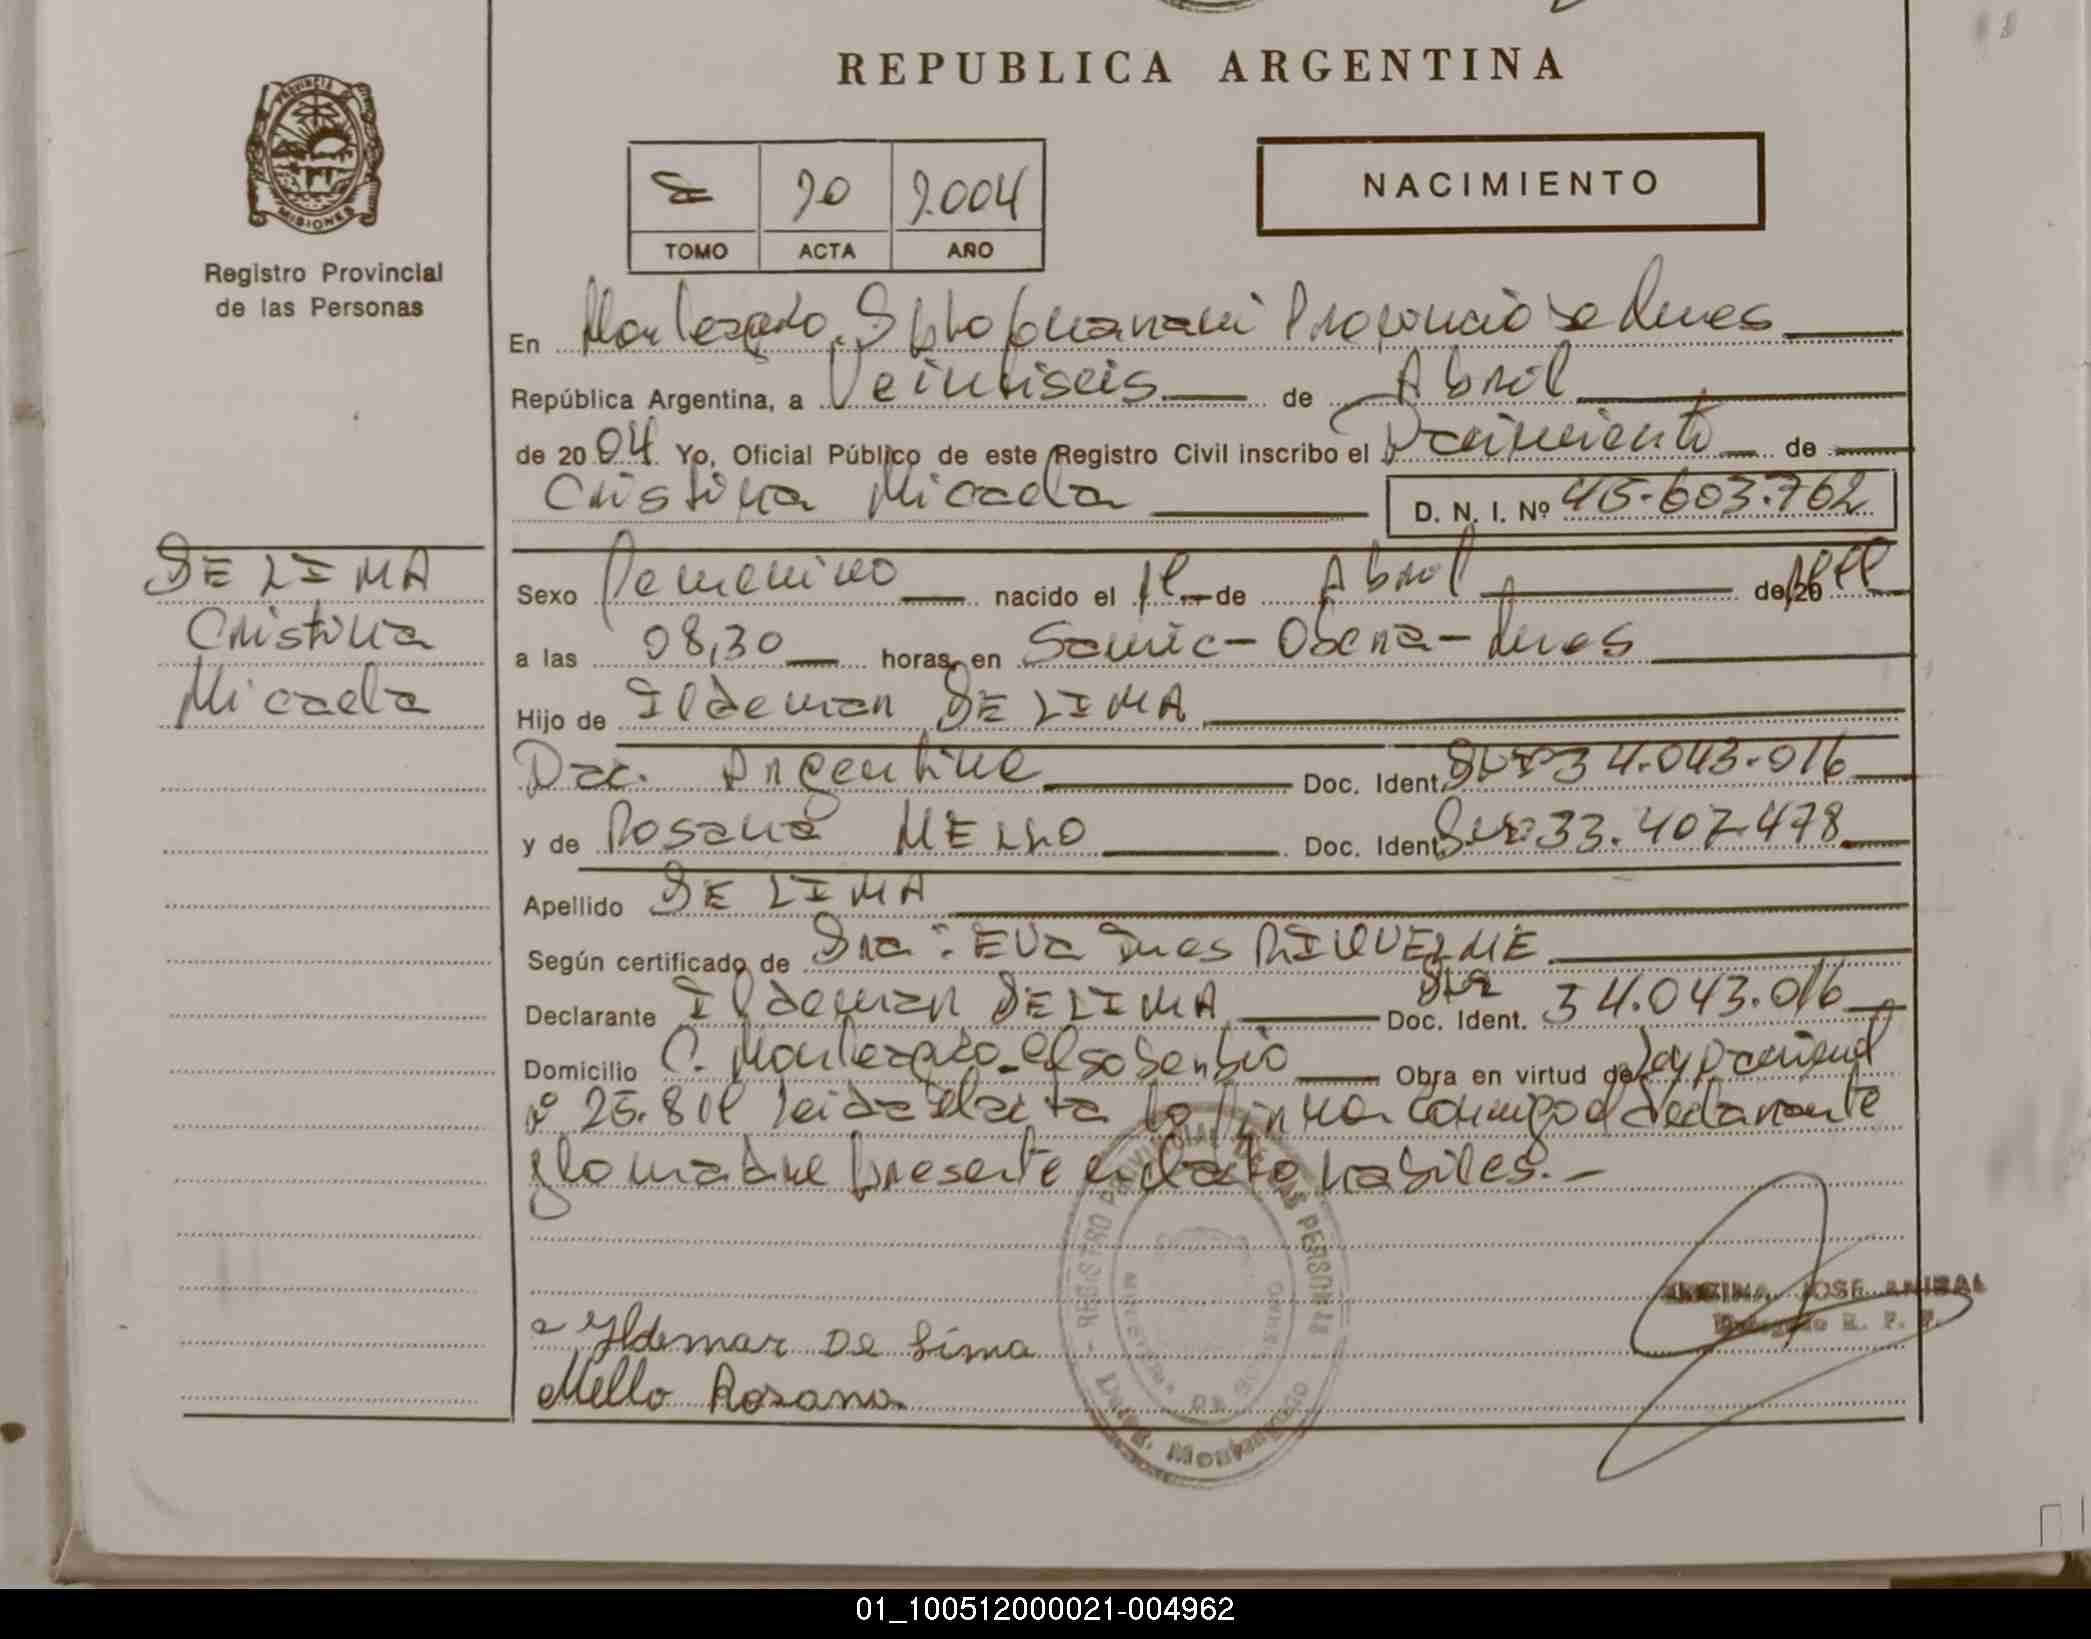 REPUBLICA ARGENTINA
PROVINCIA DE
MISIONES
Registro Provincial
de las Personas
20 2004
TOMO ACTA AÑO
NACIMIENTO
En Provincia de
República Argentina, a Veintiseis de Abril
de 20 04 Yo, Oficial Público de este Registro Civil inscribo el Nacimiento de
Cristina Micaela D. N. I. Nº 45.603.762
DE LIMA
Cristina
Micaela
Sexo Femenino nacido el de Abril de 20
a las 08,30 horas, en Samic - Obera - Mnes
Hijo de Ildemar DE LIMA
Nac. Argentina Doc. Ident. DNI 34.043.016
y de Rosana MELLO Doc. Ident. DNI 33.407.478
Apellido DE LIMA
Según certificado de Dra: EVA Ines RIQUELME
Declarante Ildemar DE LIMA Doc. Ident. DNI 34.043.016
Domicilio Obra en virtud de Ley Nacional
Nº 25.81 leida el acta la firman conmigo el declarante
y la madre presente en el acto habiles.-
Ildemar De Lima
Mello Rosana
REGISTRO PROVINCIAL DE LAS PERSONAS
JOSE ANIBAL
Delegado R. P. P.
01_100512000021-004962